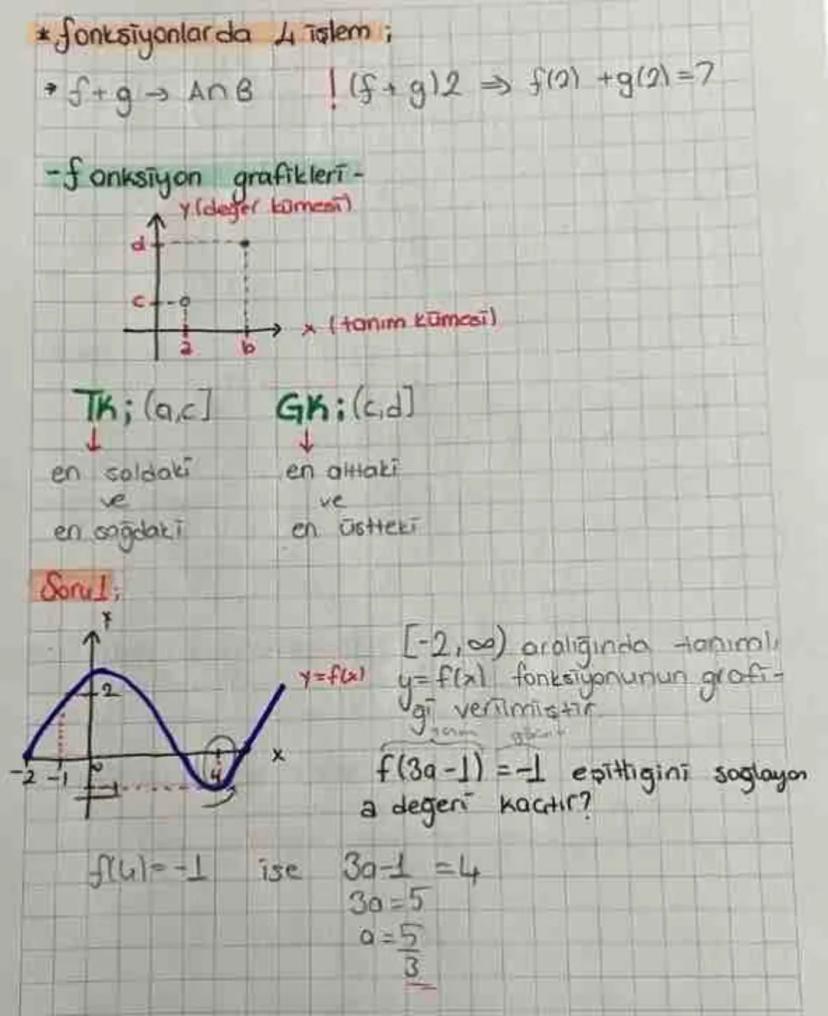 * fonksiyonlarda 4 işlem ;
→ f+g → A∩B ! (f+g)2 ⇒ f(2) +g(2)=7
-fonksiyon grafikleri-
y (değer kümesi)
d
c
x (tanım kümesi)
a b
TK; (a,c] GK; (c,d]
↓ ↓
en soldaki en alttaki
ve ve
en sağdaki en üstteki
Soru1;
y
[-2,∞) aralığında tanımlı
y=f(x) y=f(x) fonksiyonunun grafi-
2
ği verilmiştir
-2 -1 0 4 x
f(3a-1) = -1 eşitliğini sağlayan
-1
a değeri kaçtır?
f(4)=-1 ise 3a-1 =4
3a=5
a=5
3